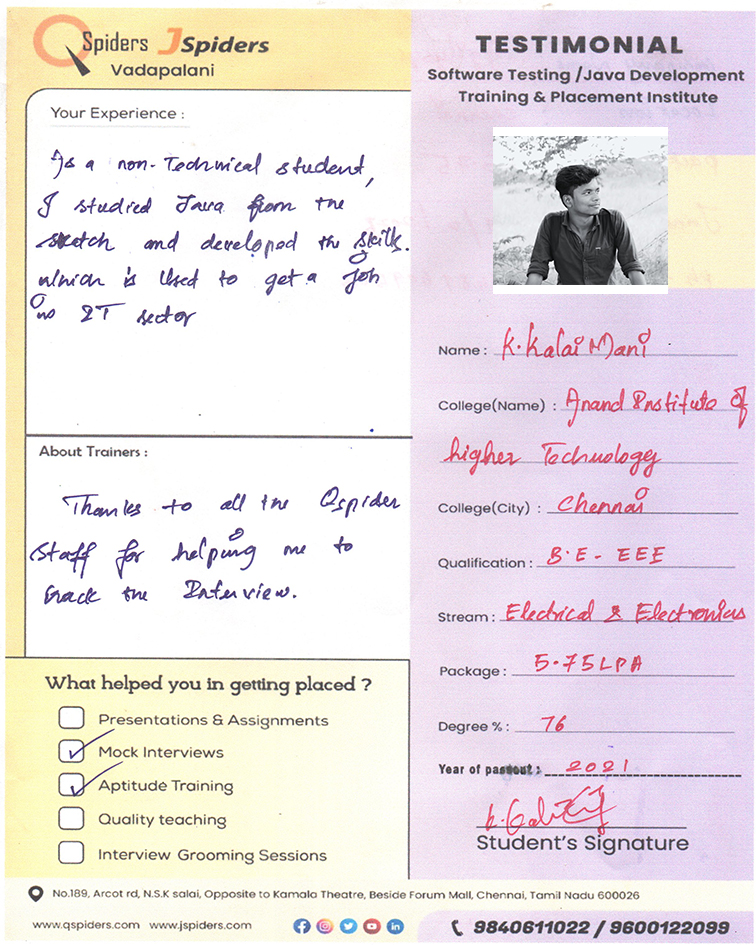 QSpiders JSpiders
Vadapalani
Your Experience :
As a non-Technical student,
I studied Java from the
sketch and developed the skills.
which is Used to get a job
in IT sector
About Trainers :
Thanks to all the Qspider
staff for helping me to
track the Interview.
What helped you in getting placed ?
Presentations & Assignments
Mock Interviews
Aptitude Training
Quality teaching
Interview Grooming Sessions
TESTIMONIAL
Software Testing /Java Development
Training & Placement Institute
Name : K. Kalai Mani
College(Name) : Anand Institute of
higher Technology
College(City) : Chennai
Qualification : B.E - EEE
Stream : Electrical & Electronics
Package : 5.75 LPA
Degree % : 76
Year of passout : 2021
Student's Signature
No.189, Arcot rd, N.S.K salai, Opposite to Kamala Theatre, Beside Forum Mall, Chennai, Tamil Nadu 600026
www.qspiders.com www.jspiders.com
9840611022 / 9600122099